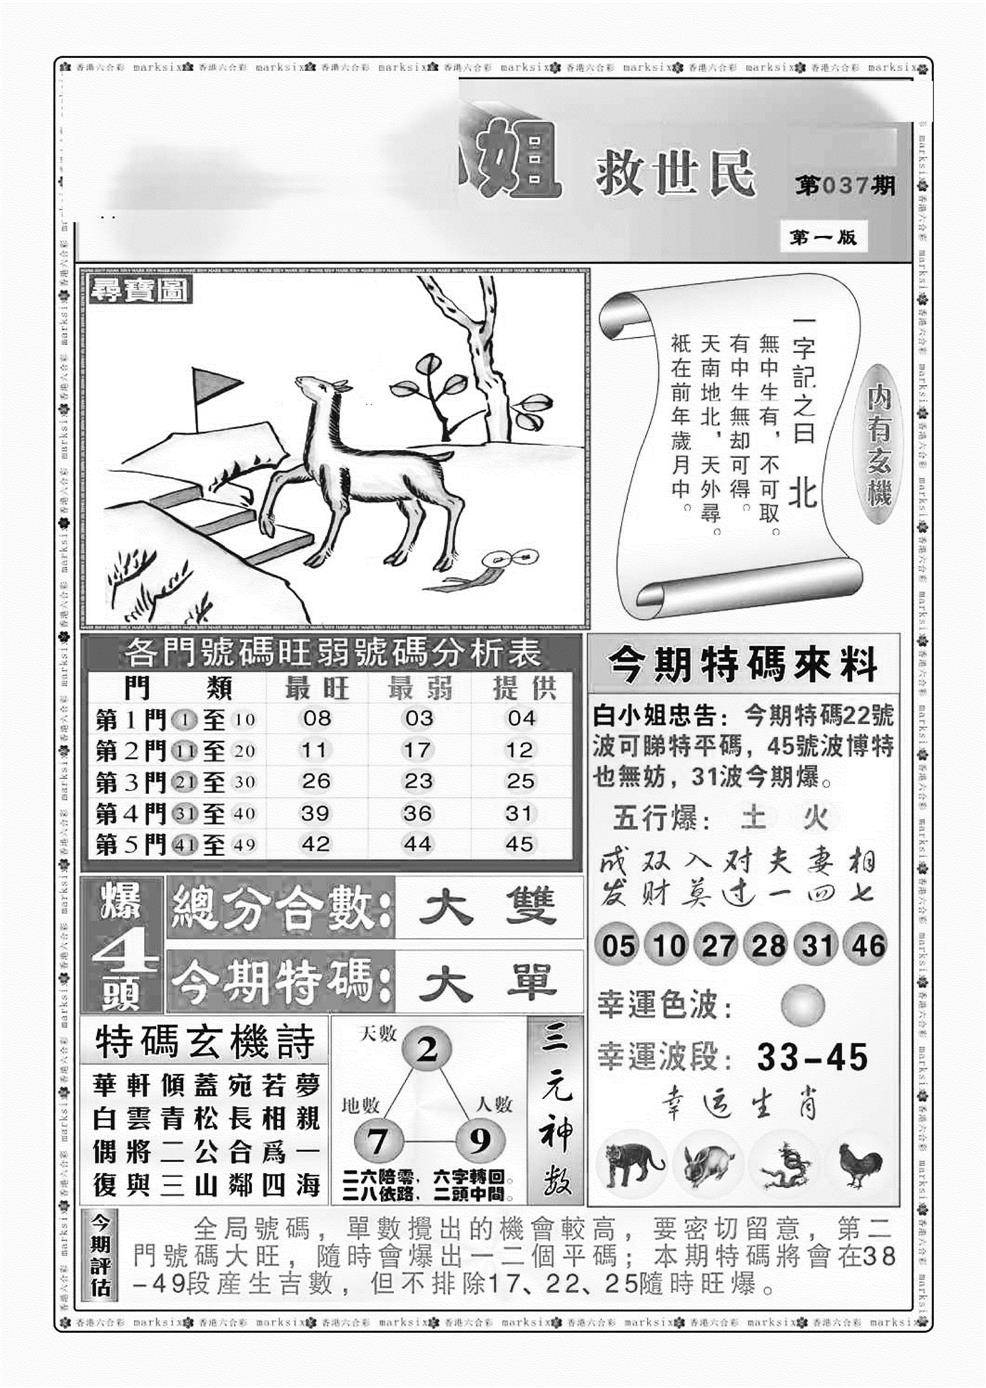 姐 救世民
第037期
第一版
尋寶圖
一字記之曰 北
無中生有，不可取。
有中生無却可得。
天南地北，天外尋。
祇在前年歲月中。
内有玄機
各門號碼旺弱號碼分析表
門 類 最旺 最弱 提供
第1門 1 至 10 08 03 04
第2門 11 至 20 11 17 12
第3門 21 至 30 26 23 25
第4門 31 至 40 39 36 31
第5門 41 至 49 42 44 45
爆4頭
總分合數: 大 雙
今期特碼: 大 單
特碼玄機詩
華軒傾蓋宛若夢
白雲青松長相親
偶將二公合爲一
復與三山鄰四海
天數 2
地數 7
人數 9
二六陪零．六字轉回。
三八依路．二頭中間。
三元神数
今期特碼來料
白小姐忠告：今期特碼22號
波可睇特平碼，45號波博特
也無妨，31波今期爆。
五行爆： 土 火
成双入对夫妻相
发财莫过一四七
05 10 27 28 31 46
幸運色波：
幸運波段：33-45
幸运生肖
今期評估
全局號碼，單數攪出的機會較高，要密切留意，第二
門號碼大旺，隨時會爆出一二個平碼；本期特碼將會在38
-49段産生吉數，但不排除17、22、25隨時旺爆。
香港六合彩 marksix 香港六合彩 marksix 香港六合彩 marksix 香港六合彩 marksix 香港六合彩 marksix 香港六合彩 marksix 香港六合彩 marksix